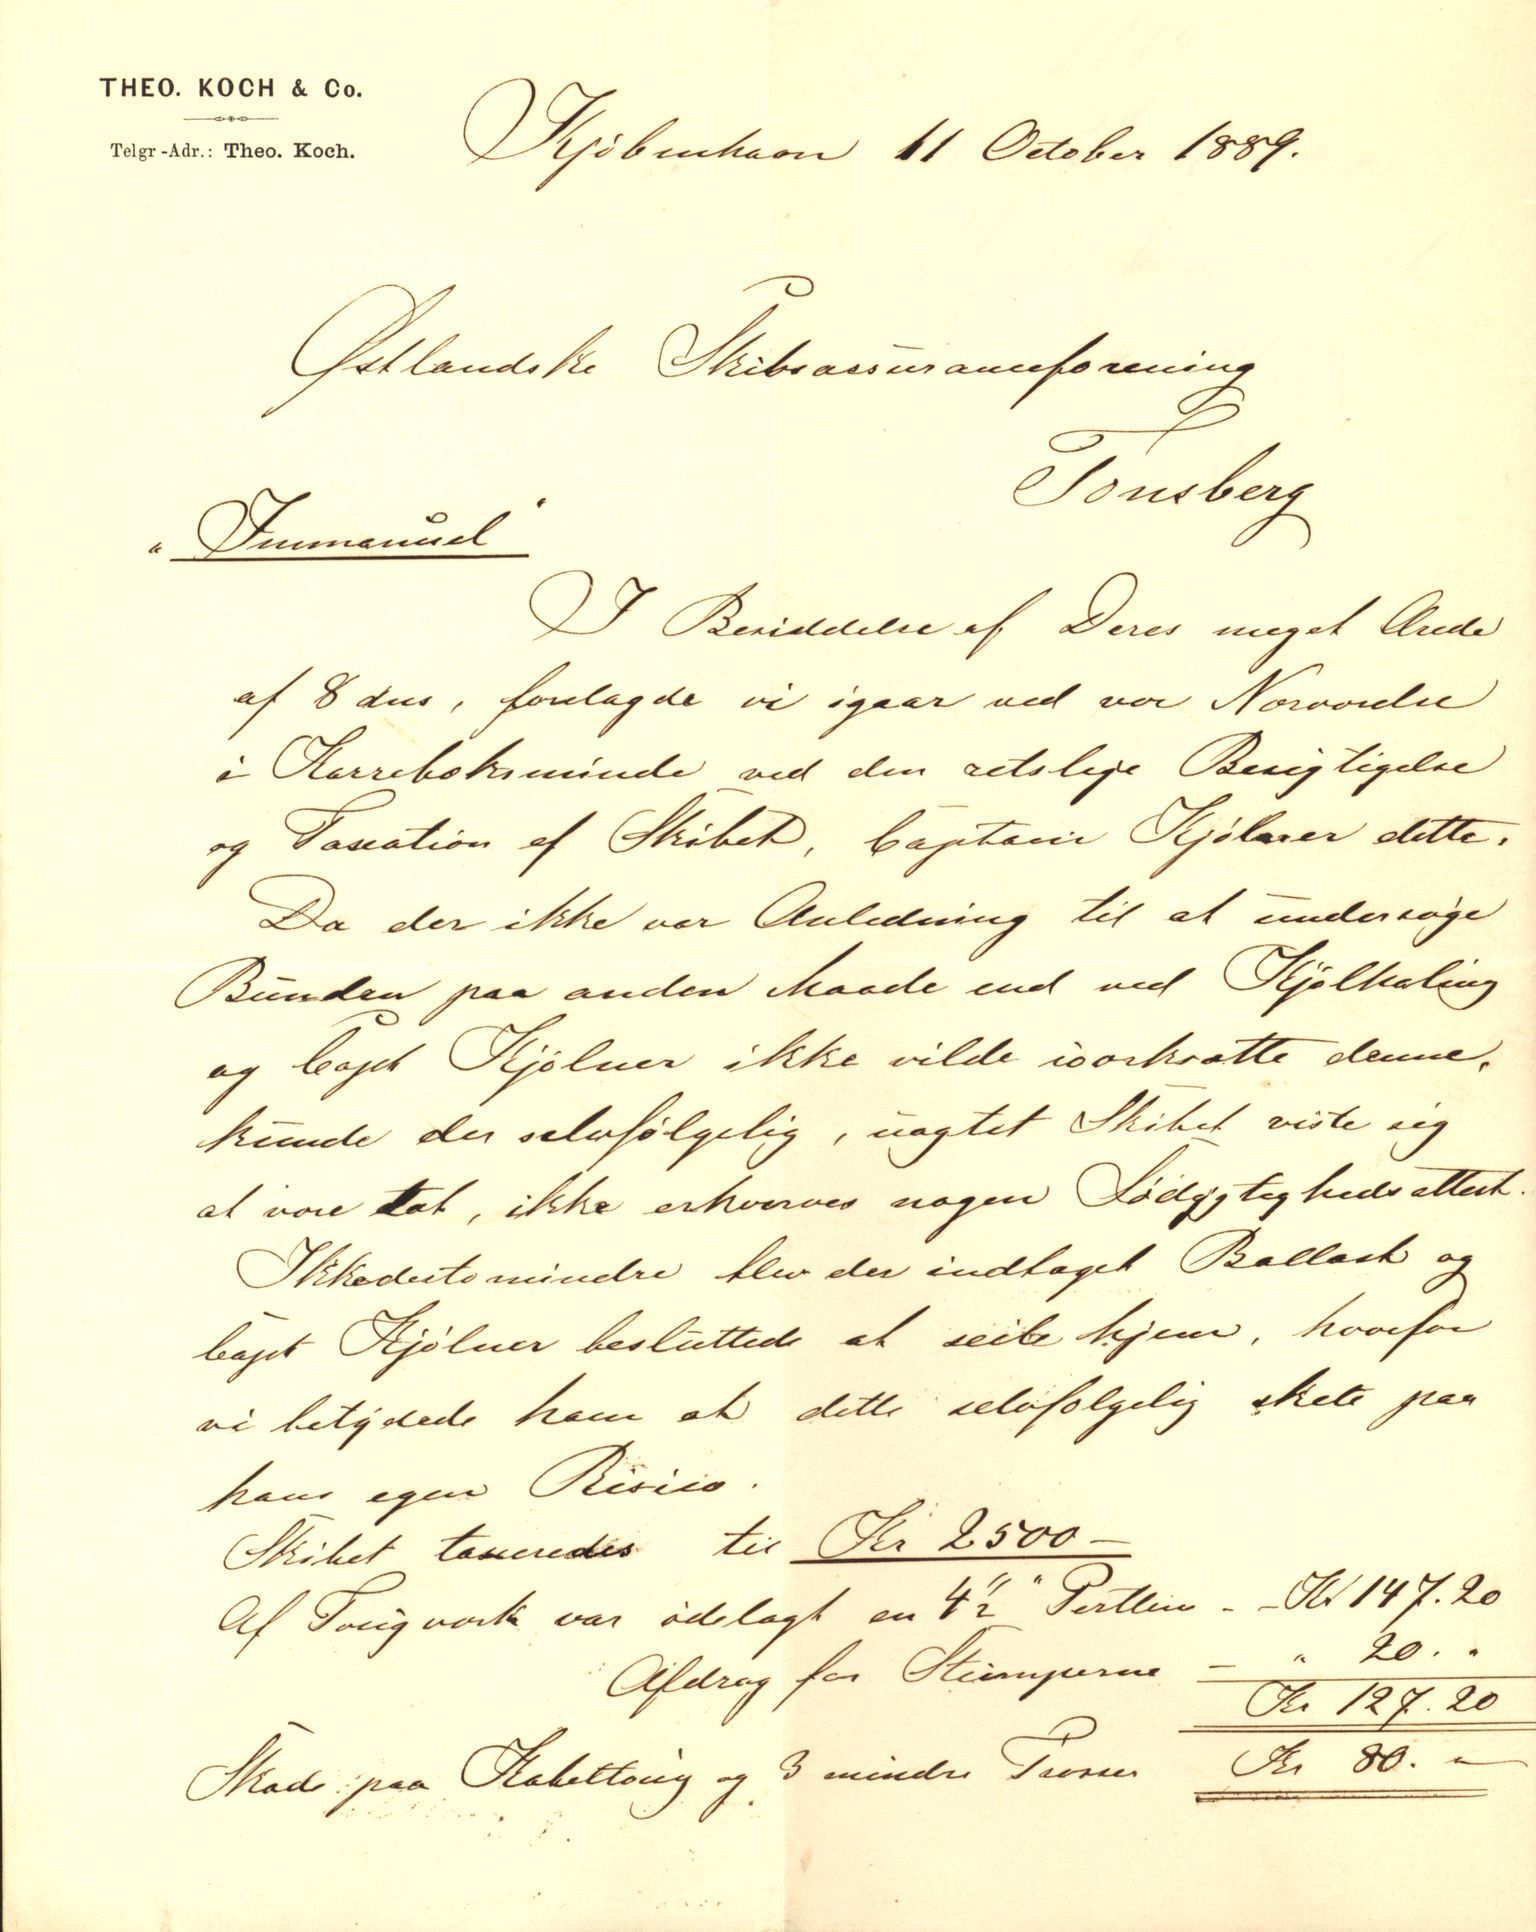 THEO. KOCH & Co.
Telgr-Adr.: Theo. Koch.
Kjöbenhavn 11 October 1889.
Østlandske Skibsassuranceforening
Tönsberg
"Immanuel"
I Besiddelse af Deres meget Ærede
af 8 dns, forelagde vi igaar ved vor Nærværelse
i Karrebæksminde ved den retslige Besigtigelse
og Taxation af Skibet, Captain Kjölner dette.
Da der ikke var Anledning til at undersöge
Bunden paa anden Maade end ved Kjölhaling
og Capt Kjölner ikke vilde iværksætte denne,
kunde der selvfölgelig, uagtet Skibet viste sig
at være tæt, ikke erhverves nogen Södygtighedsattest.
Ikkedestomindre blev der indtaget Ballast og
Capt Kjölner besluttede at seile hjem, hvorfor
vi betydede ham at dette selvfölgelig skete paa
hans egen Risico.
Skibet taxeredes til Kr 2500 —
Af Tougværk var ödelagt en 4½" Pertlin - - Kr 147.20
Afdrag for Stumperne - " 20. "
Kr 127.20
Skade paa Kabeltoug og 3 mindre Trosser Kr 80. —